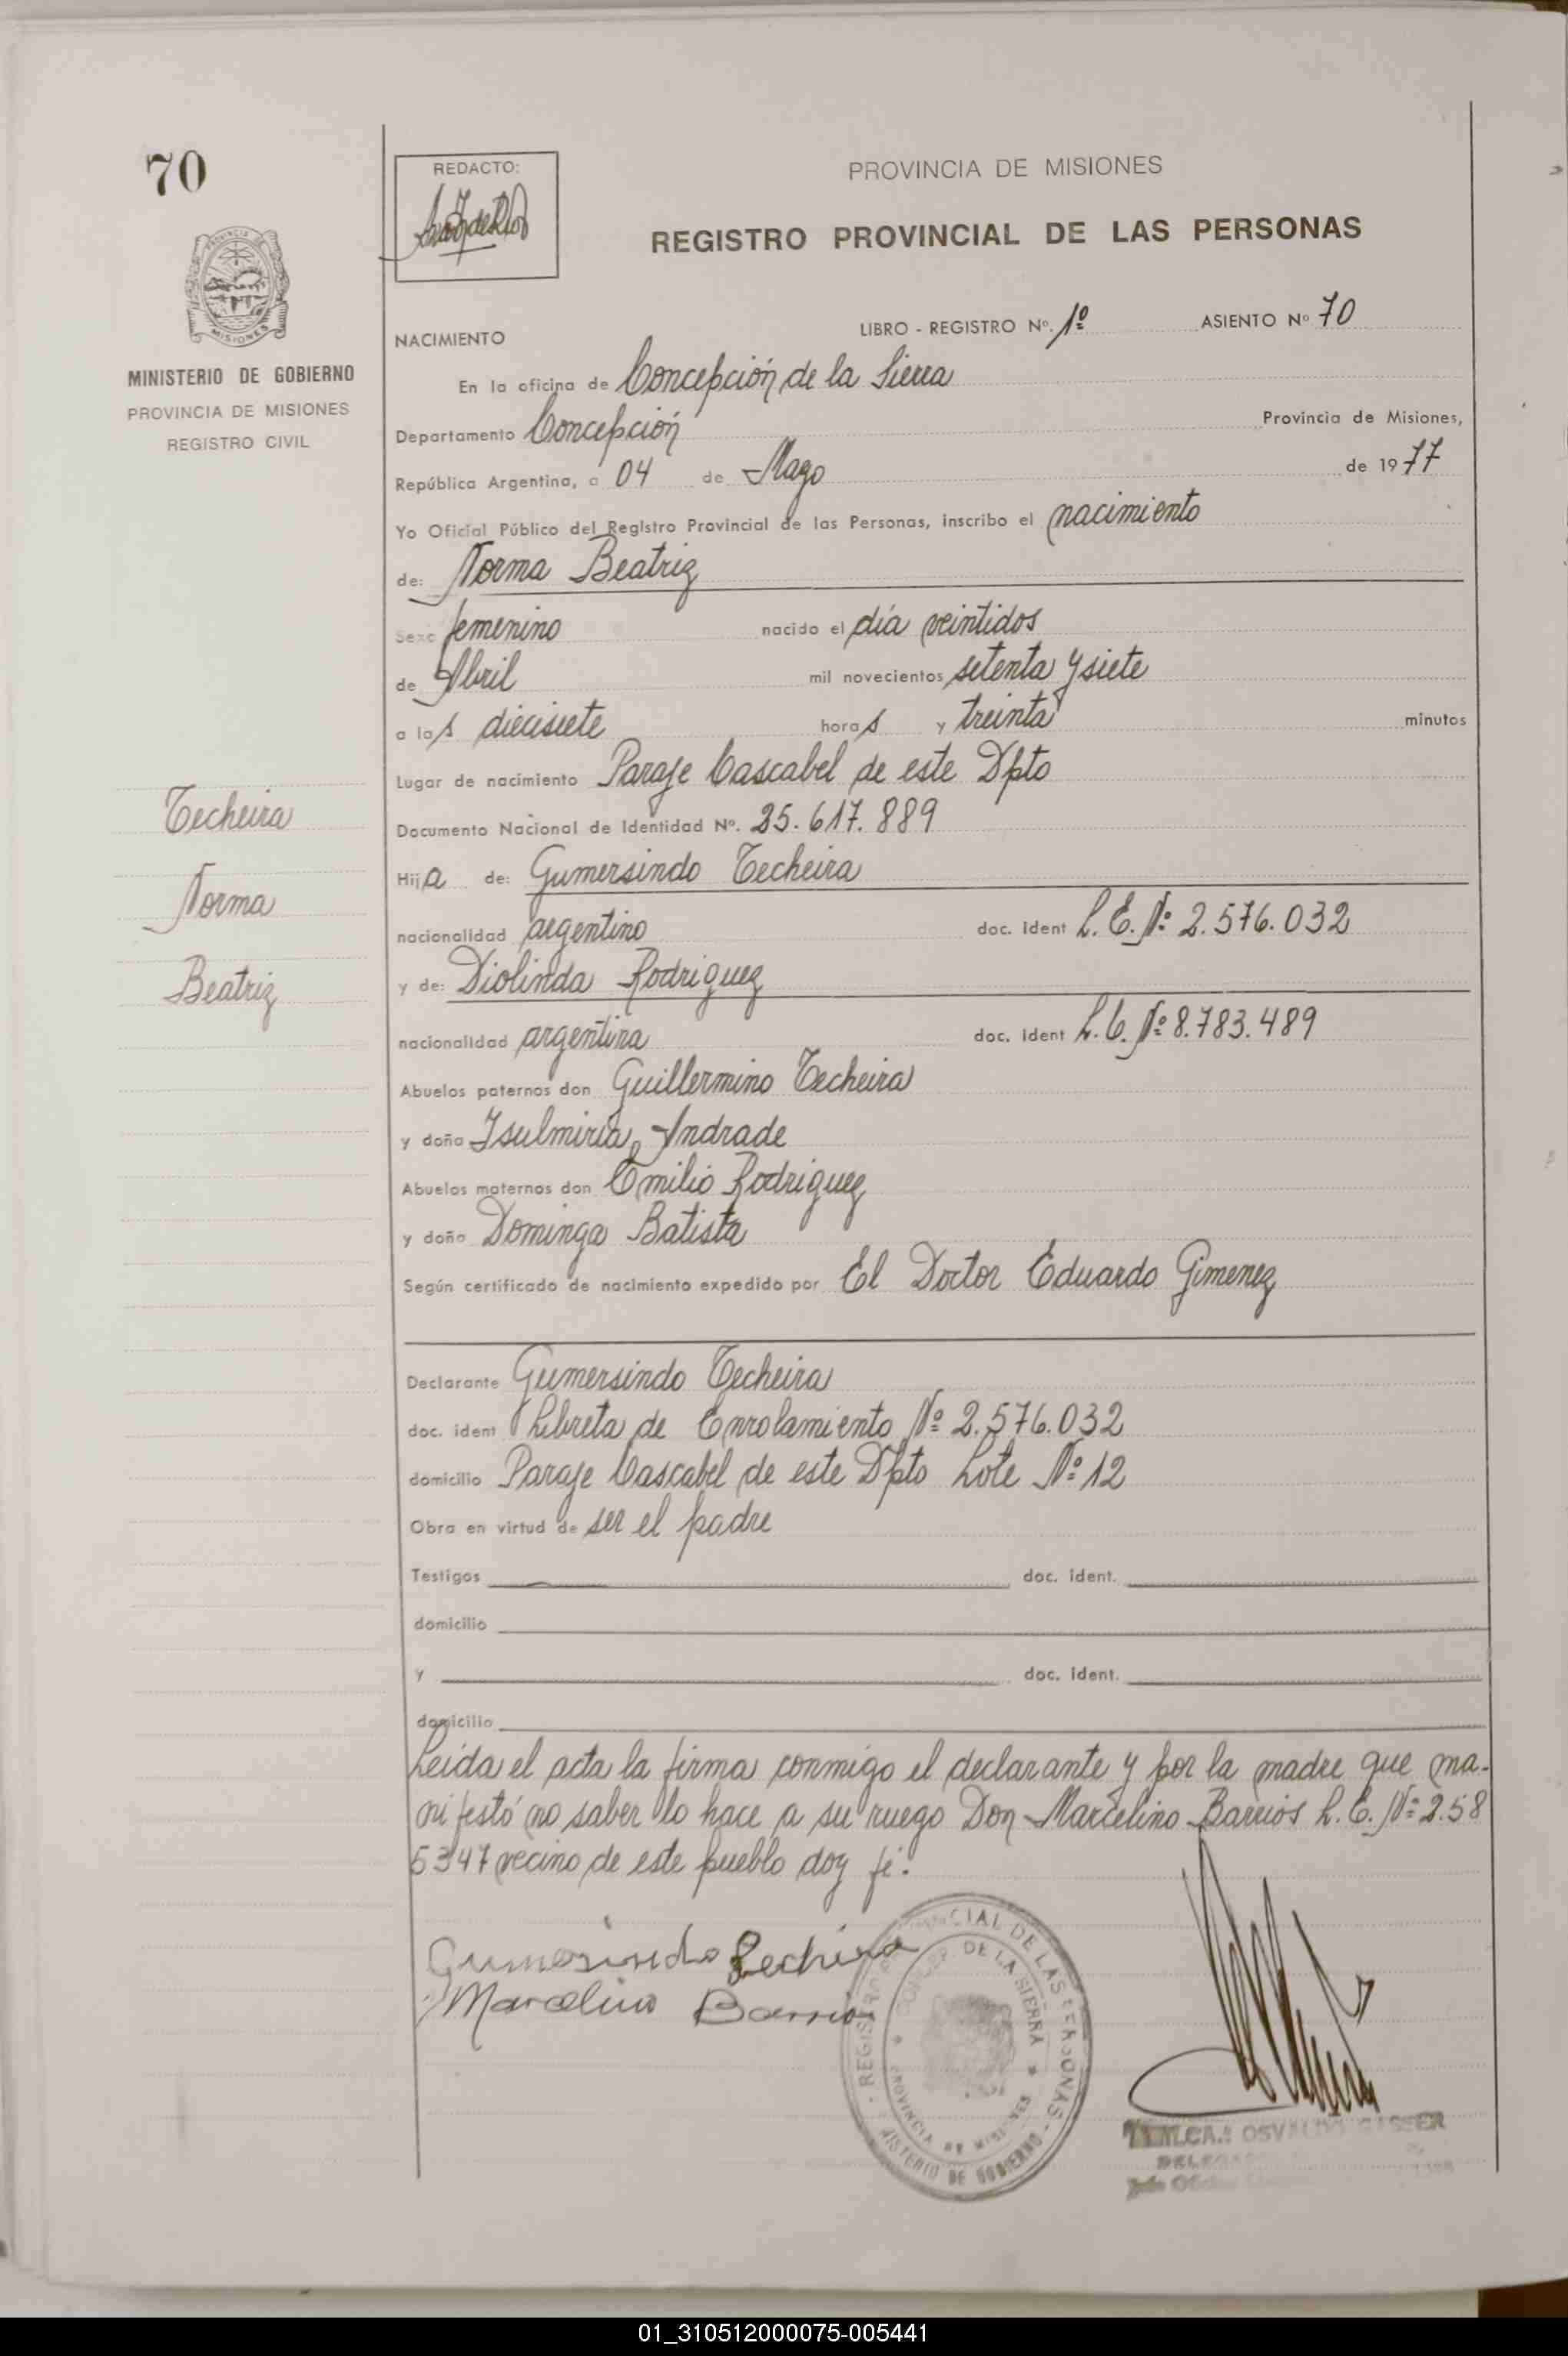 70
REDACTO:
PROVINCIA DE MISIONES
REGISTRO PROVINCIAL DE LAS PERSONAS
PROVINCIA DE
MISIONES
MINISTERIO DE GOBIERNO
PROVINCIA DE MISIONES
REGISTRO CIVIL
NACIMIENTO LIBRO - REGISTRO Nº. 1º ASIENTO Nº 70
En la oficina de Concepción de la Sierra
Departamento Concepción Provincia de Misiones,
República Argentina, a 04 de Mayo de 1977
Yo Oficial Público del Registro Provincial de las Personas, inscribo el nacimiento
de: Norma Beatriz
Sexo femenino nacido el día veintidos
de Abril mil novecientos setenta y siete
a las diecisiete horas y treinta minutos
Lugar de nacimiento Paraje Cascabel de este Dpto
Documento Nacional de Identidad Nº. 25.617.889
Techeira
Norma
Beatriz
Hija de: Gumersindo Techeira
nacionalidad argentino doc. ident L.E. Nº 2.576.032
y de: Diolinda Rodriguez
nacionalidad argentina doc. ident L.C. Nº 8.783.489
Abuelos paternos don Guillermino Techeira
y doña Isulmiria Andrade
Abuelos maternos don Emilio Rodriguez
y doña Dominga Batista
Según certificado de nacimiento expedido por El Doctor Eduardo Gimenez
Declarante Gumersindo Techeira
doc. ident Libreta de Enrolamiento Nº 2.576.032
domicilio Paraje Cascabel de este Dpto Lote Nº 12
Obra en virtud de ser el padre
Testigos doc. ident.
domicilio
y doc. ident.
domicilio
Leída el acta la firma conmigo el declarante y por la madre que ma-
nifestó no saber lo hace a su ruego Don Marcelino Barrios L.E. Nº 2.58
5347 vecino de este pueblo doy fé.
Gumersindo Techeira
Marcelino Barrios
REGISTRO PROVINCIAL DE LAS PERSONAS
CONCEP. DE LA SIERRA
PROVINCIA DE MISIONES
MINISTERIO DE GOBIERNO
OSVALDO GASSER
01_310512000075-005441